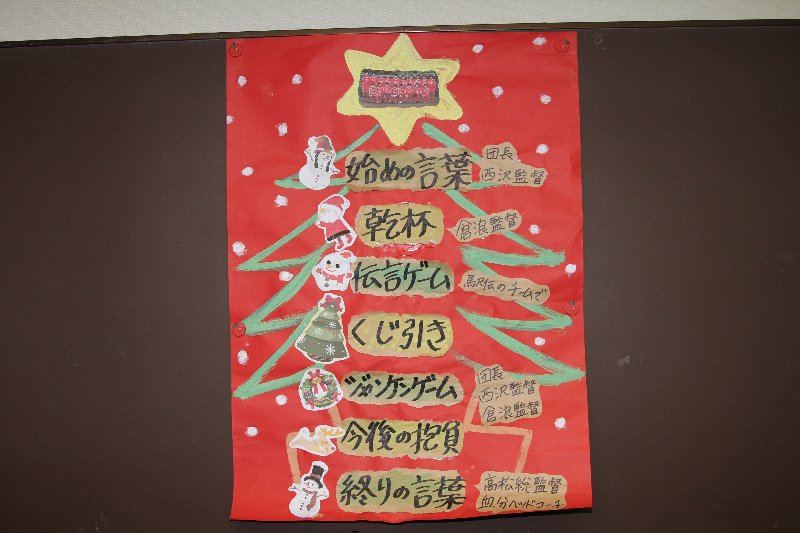 始めの言葉
団長
西沢監督
乾杯
倉浪監督
伝言ゲーム
駅伝のチームで
くじ引き
ジャンケンゲーム
団長
西沢監督
倉浪監督
今後の抱負
終りの言葉
高松総監督
ヘッドコーチ